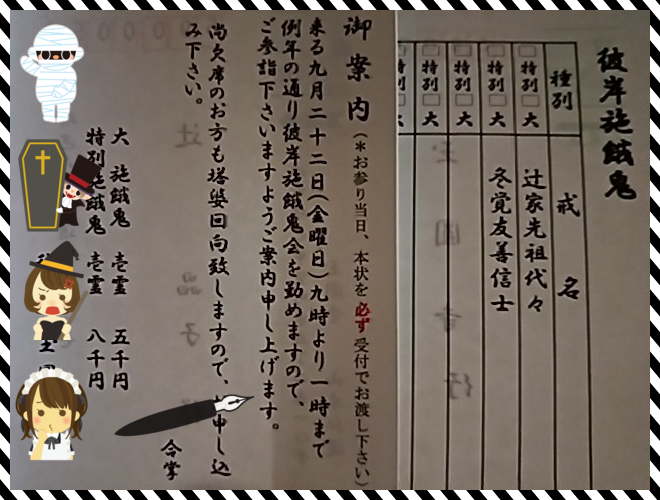 彼岸施餓鬼
種別 戒名
特別 大 辻家先祖代々
特別 大 冬覚友善信士
特別 大
特別 大
特別 大
御案内(*お参り当日、本状を必ず受付でお渡し下さい)
来る九月二十二日(金曜日)九時より一時まで
例年の通り彼岸施餓鬼会を勤めますので、
ご参詣下さいますようご案内申し上げます。
尚欠席のお方も塔婆回向致しますので、申し込
み下さい。
合掌
大施餓鬼 壱霊 五千円
特別施餓鬼 壱霊 八千円